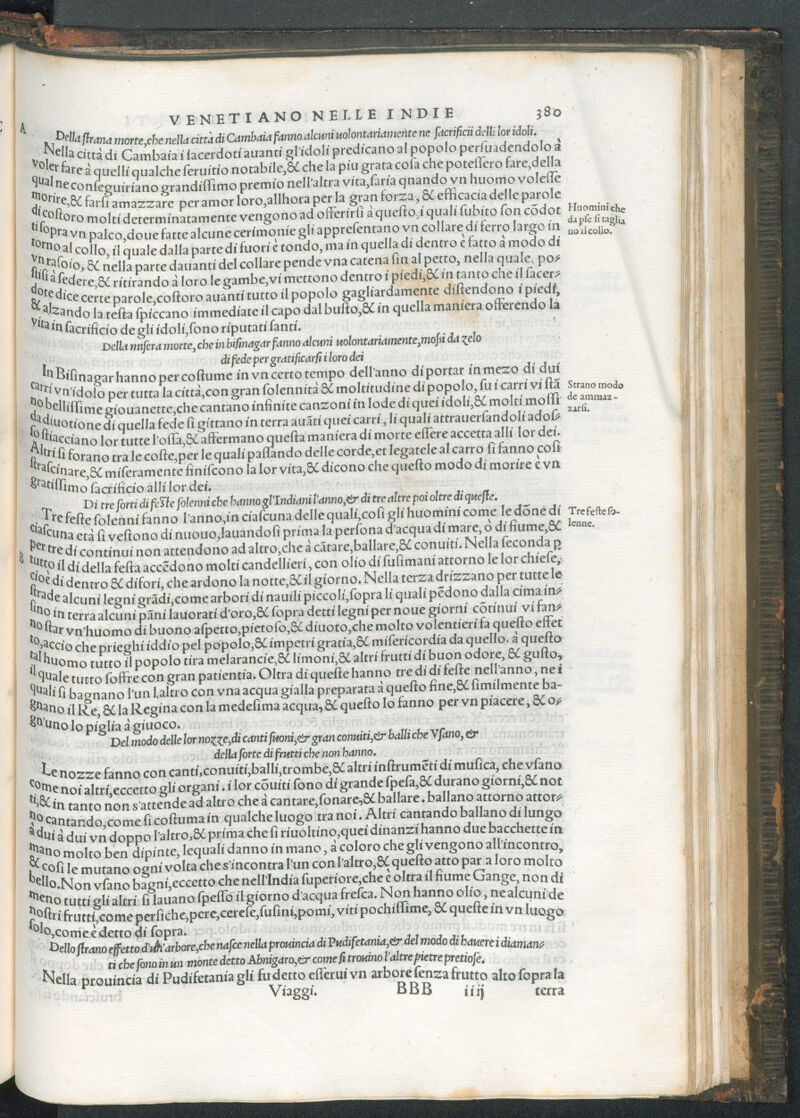 VENETIANO NELLE INDIE 380
A
Della ſtrana morte,che nella città di Cambaia fanno alcuni uolontariamente ne ſacrificii delli lor idoli.
Nella città di Cambaia i ſacerdoti auanti gl'idoli predicano al popolo perſuadendolo à
voler fare à quelli qualche ſeruitio notabile,& che la piu grata coſa che poteſſero fare,della
qual ne conſeguiriano grandiſſimo premio nell'altra vita,faria qnando vn huomo voleſſe
morire,& farſi amazzare per amor loro,allhora per la gran forza, & efficacia delle parole
di coſtoro molti determinatamente vengono ad offerirſi à queſto,i quali ſubito ſon cõdot
ti ſopra vn palco,doue fatte alcune cerimonie gli appreſentano vn collare di ferro largo in
torno al collo, il quale dalla parte di fuori è tondo, ma in quella di dentro è fatto à modo di
vn raſoio, & nella parte dauanti del collare pende vna catena fin al petto, nella quale, po⸗
ſtiſi à ſedere,& ritirando à loro le gambe,vi mettono dentro i piedi,& in tanto che il ſacer⸗
dote dice certe parole,coſtoro auanti tutto il popolo gagliardamente diſtendono i piedi,
& alzando la teſta ſpiccano immediate il capo dal buſto,& in quella maniera offerendo la
vita in ſacrificio de gli idoli,ſono riputati ſanti.
Huomini che
da pſe ſi taglia
uo il collo.
Della miſera morte, che in biſinagar fanno alcuni uolontariamente,moſsi da zelo
di fede per gratificarſi i loro dei
In Biſinagar hanno per coſtume in vn certo tempo dell'anno di portar in mezo di dui
carri vn'idolo per tutta la città,con gran ſolennità & moltitudine di popolo, ſu i carri vi ſtã
no belliſſime giouanette,che cantano infinite canzoni in lode di quei idoli,& molti moſſi
da diuotione di quella fede ſi gittano in terra auãti quei carri, li quali attrauerſandoli adoſ⸗
ſo ſtiacciano lor tutte l'oſſa,& affermano queſta maniera di morte eſſere accetta alli lor dei.
Altri ſi forano tra le coſte,per le quali paſſando delle corde,et legatele al carro ſi fanno coſi
ſtraſcinare,& miſeramente finiſcono la lor vita,& dicono che queſto modo di morire è vn
gratiſſimo ſacrificio alli lor dei.
Strano modo
de ammaz-
zarſi.
Di tre ſorti di feſte ſolenni che hanno gl'Indiani l'anno,& di tre altre poi oltre di queſte.
Tre feſte ſolenni fanno l'anno,in ciaſcuna delle quali,coſi gli huomini come le dõne di
ciaſcuna età ſi veſtono di nuouo,lauandoſi prima la perſona d'acqua di mare, ò di fiume,&
per tre di continui non attendono ad altro,che à cãtare,ballare,& conuiti. Nella ſeconda p
B
tutto il di della feſta accẽdono molti candellieri, con olio di ſuſimani attorno le lor chieſe,
cioè di dentro & difori, che ardono la notte,& il giorno. Nella terza drizzano per tutte le
ſtrade alcuni legni grãdi,come arbori di nauili piccoli,ſopra li quali pẽdono dalla cima in⸗
ſino in terra alcuni pãni lauorati d'oro,& ſopra detti legni per noue giorni cõtinui vi fan⸗
no ſtar vn'huomo di buono aſpetto,pietoſo,& diuoto,che molto volentieri fa queſto effet
to,accio che prieghi iddio pel popolo,& impetri gratia,& miſericordia da quello. à queſto
tal huomo tutto il popolo tira melarancie,& limoni,& altri frutti di buon odore, & guſto,
il quale tutto ſoffre con gran patientia. Oltra di queſte hanno tre di di feſte nell'anno, ne i
quali ſi bagnano l'un l,altro con vna acqua gialla preparata à queſto fine,& ſimilmente ba-
gnano il Re, & la Regina con la medeſima acqua, & queſto lo fanno per vn piacere, & o⸗
gn'uno lo piglia à giuoco.
Tre feſte ſo-
lenne.
Del modo delle lor nozze,di canti ſuoni,& gran conuiti,& balli che Vſano, &
della ſorte di frutti che non hanno.
Le nozze fanno con canti,conuiti,balli,trombe,& altri inſtrumẽti di muſica, che vſano
come noi altri,eccetto gli organi. i lor cõuiti ſono di grande ſpeſa,& durano giorni,& not
ti,& in tanto non s'attende ad altro che à cantare,ſonare,& ballare. ballano attorno attor⸗
no cantando,come ſi coſtuma in qualche luogo tra noi. Altri cantando ballano di lungo
à dui à dui vn doppo l'altro,& prima che ſi riuoltino,quei dinanzi hanno due bacchette in
mano molto ben dipinte, lequali danno in mano, à coloro che gli vengono all'incontro,
& coſi le mutano ogni volta che s'incontra l'un con l'altro,& queſto atto par a loro molto
bello.Non vſano bagni,eccetto che nell'India ſuperiore,che è oltra il fiume Gange, non di
meno tutti gli altri ſi lauano ſpeſſo il giorno d'acqua freſca. Non hanno olio, ne alcuni de
noſtri frutti,come perſiche,pere,cereſe,ſuſini,pomi, viti pochiſſime, & queſte in vn luogo
ſolo,come è detto di ſopra.
Dello ſtrano effetto d'un'arbore,che naſce nella prouincia di Pudifetania,& del modo di hauere i diaman⸗
ti che ſono in un monte detto Abnigaro,& come ſi trouino l'altre pietre pretioſe.
Nella prouincia di Pudifetania gli fu detto eſſerui vn arbore ſenza frutto alto ſopra la
Viaggi. BBB iiij terra